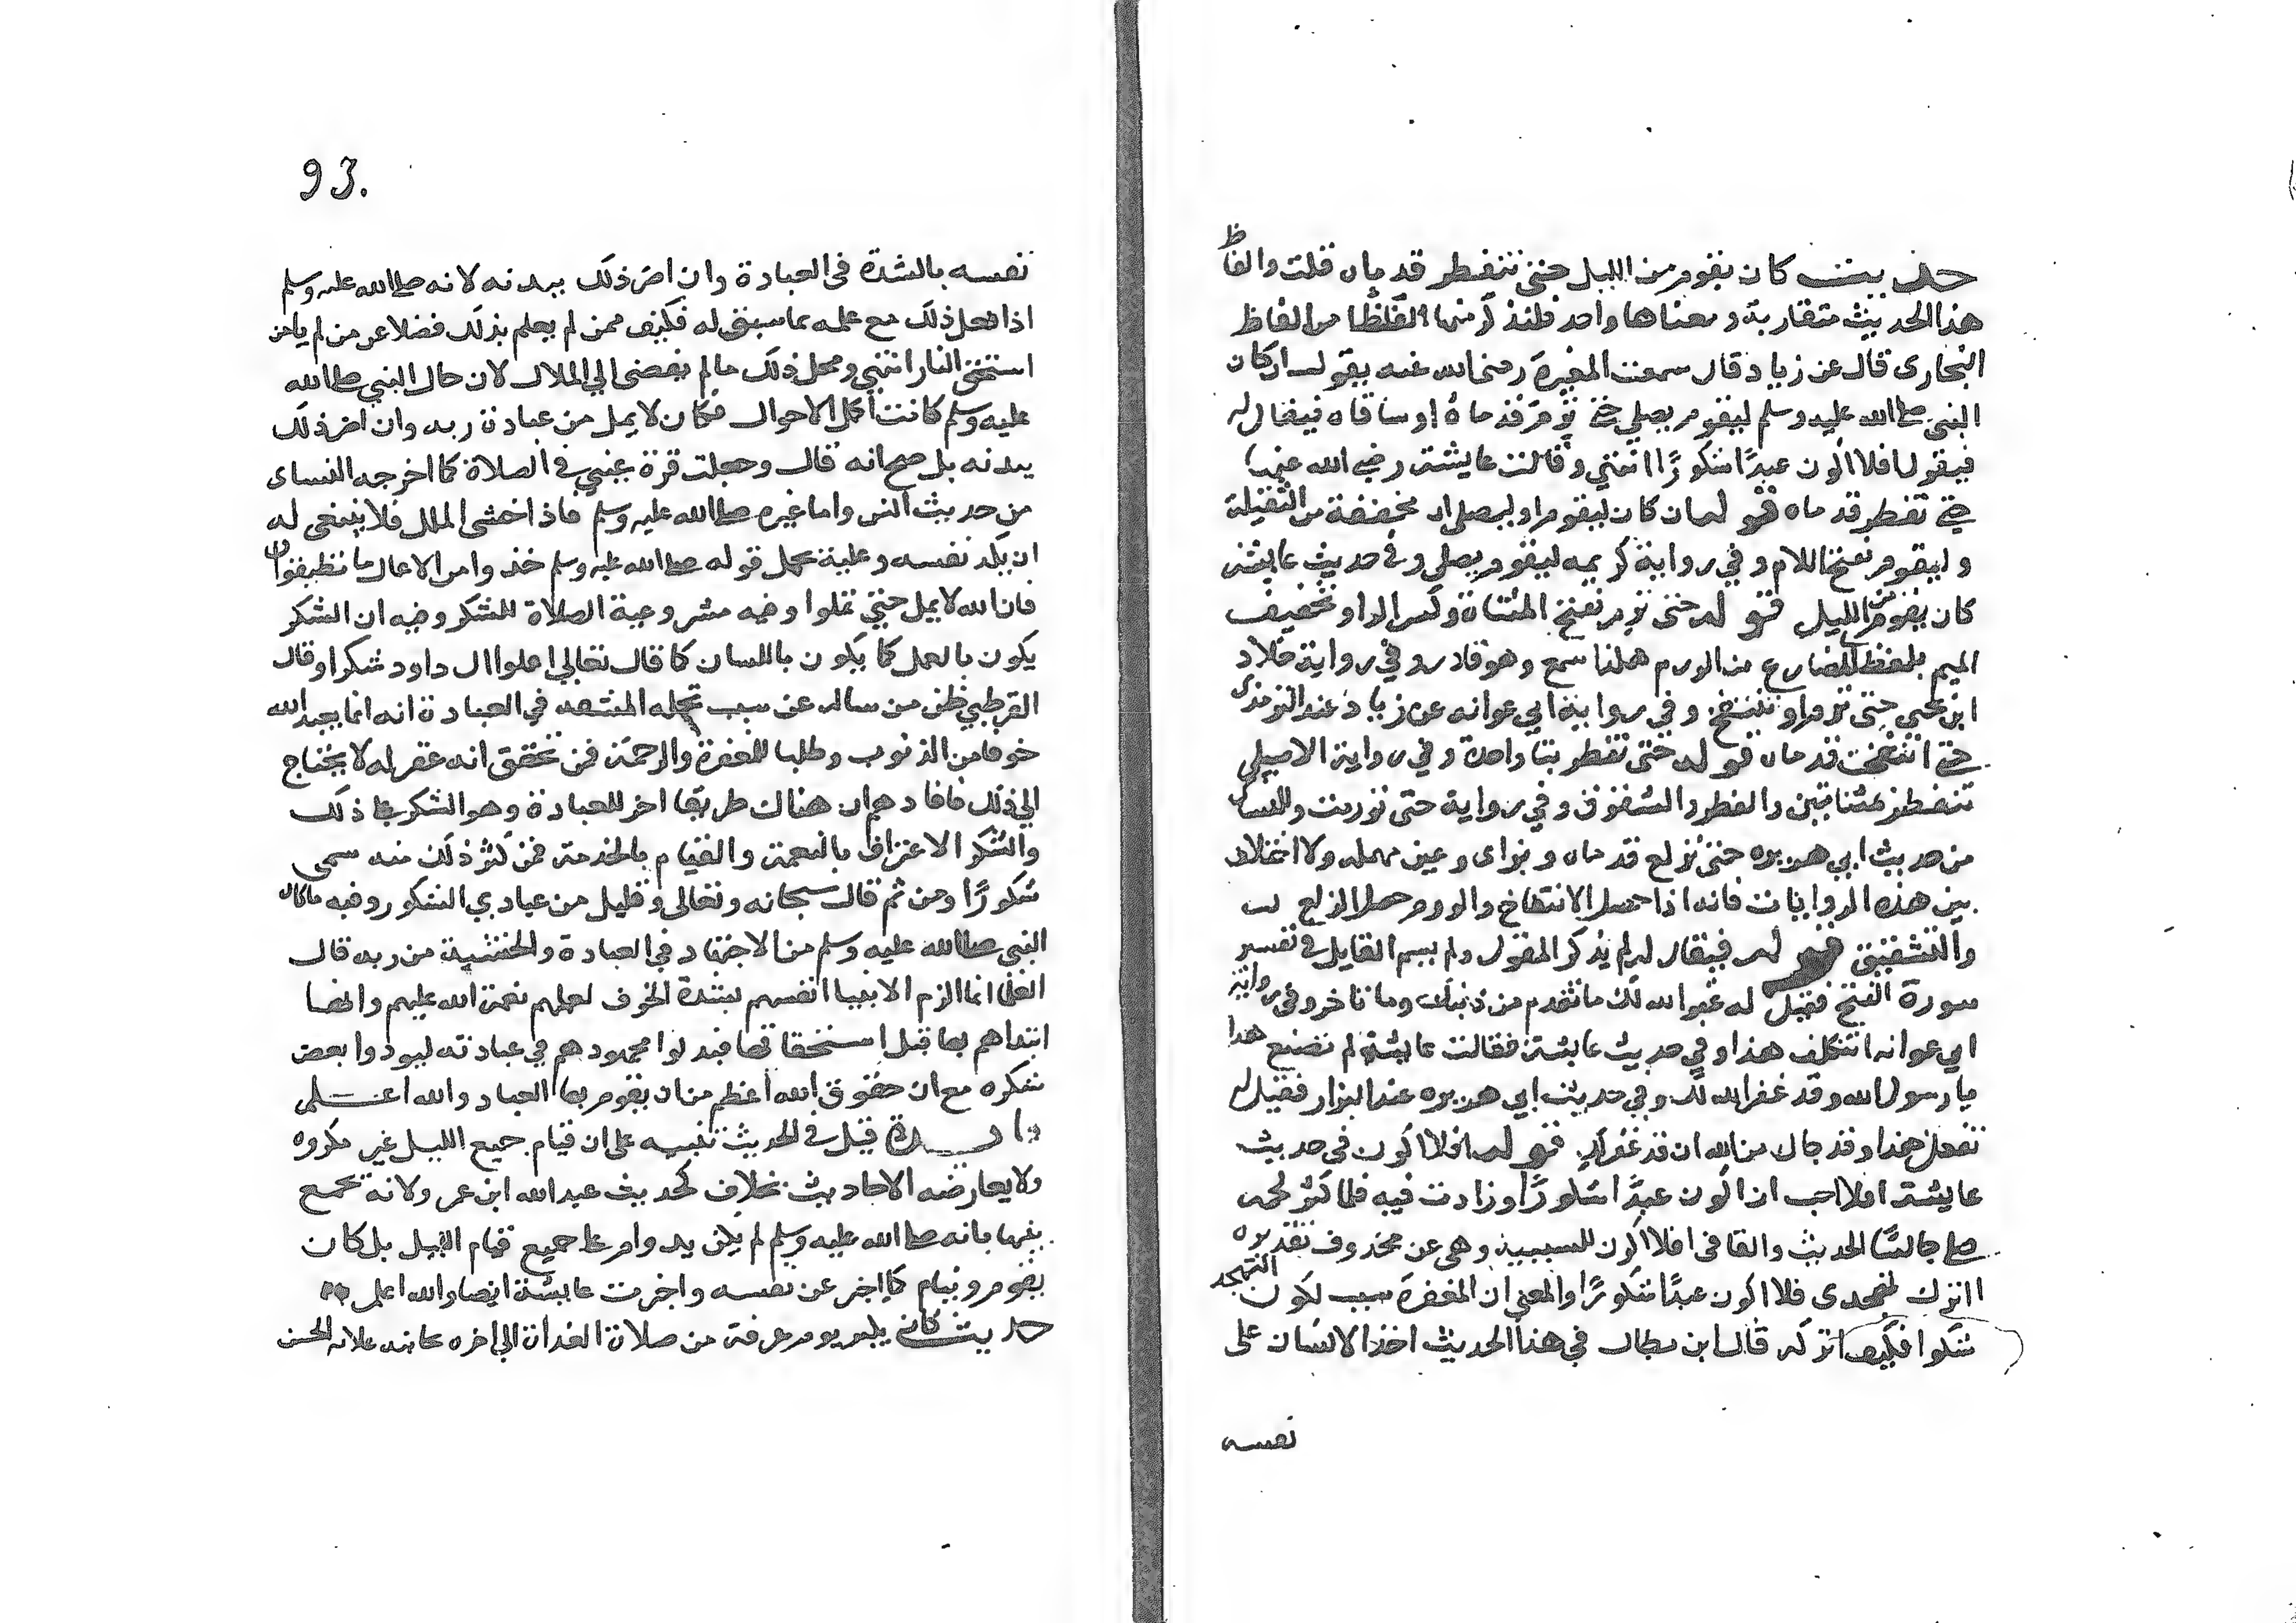 حديث كان يقوم من الليل حتى تتفطر قدماه قلت والفاظ
هذا الحديث متقاربة ومعناها واحد فلنذكر منها الفاظا من الفاظ
البخارى قال عن زياد قال سمعت المغيرة رضى الله عنه يقول ان كان
النبي صلى الله عليه وسلم ليقوم يصلي حتى ترم قدماه او ساقاه فيقال له
فيقول افلا اكون عبدًا شكورًا انتهي وقالت عايشة رضي الله عنها
حتى تفطر قدماه قوله ان كان ليقوم او ليصلى ان مخففة من الثقيلة
وليقوم بفتح اللام وفي رواية كريمه ليقوم يصلى وفي حديث عايشة
كان يقوم من الليل قوله حتى ترم بفتح المثناة وكسر الرا وتخفيف
الميم بلفظ المضارع من الورم هكذا سمع وهو نادر وفي رواية خلاد
ابن يحيى حتى ترم او تنتفخ وفي رواية ابي عوانه عن زياد عند الترمذى
حتى انتفخت قدماه قوله حتى تفطر بتا واحدة وفي رواية الاصيلي
تتفطر بمثناتين والفطر والشقوق وفي رواية حتى تورمت وللنساى
من حديث ابي هريره حتى تزلع قدماه وبزاى وعين مهمله ولا اختلاف
بين هذه الروايات فانه اذا حصل الانتفاخ والورم حصل الزلع
والتشقيق قوله فيقال له لم يذكر المقول ولم يسم القايل في تفسير
سورة الفتح فقيل له غفر الله لك ما تقدم من ذنبك وما تاخر وفي رواية
ابي عوانه اتتكلف هذا وفي حديث عايشة فقالت عايشة لم تصنع هذا
يا رسول الله وقد غفر الله لك وفي حديث ابي هريره عند البزار فقيل له
تفعل هذا وقد جاك من الله ان قد غفر لك قوله افلا اكون في حديث
عايشة افلا احب ان اكون عبدًا شكورًا وزادت فيه فلما كثر لحمه
صلى جالسًا الحديث والفا في افلا اكون للسببية وهى عن محذوف تقديره
ااترك تهجدى فلا اكون عبدًا شكورًا والمعنى ان المغفرة سبب لكون التهجد
شكرا فكيف اتركه قال ابن بطال في هذا الحديث اخذ الانسان على
نفسه
93.
نفسه بالشدة فى العبادة وان اضر ذلك ببدنه لانه صلى الله عليه وسلم
اذا فعل ذلك مع علمه بما سبق له فكيف ممن لم يعلم بذلك فضلا عن من لم يامن
استحق النار انتهي ومحل ذلك ما لم يفضى الي الملال لان حال النبي صلى الله
عليه وسلم كانت اكمل الاحوال فكان لا يمل من عبادة ربه وان اضر ذلك
ببدنه بل صح انه قال وجعلت قرة عيني في الصلاة كما اخرجه النساى
من حديث انس واما غيره صلى الله عليه وسلم فاذا خشى الملل فلا ينبغى له
ان يكد نفسه وعليه يحمل قوله صلى الله عليه وسلم خذوا من الاعمال ما تطيقون
فان الله لا يمل حتى تملوا وفيه مشروعية الصلاة للشكر وفيه ان الشكر
يكون بالعمل كما يكون باللسان كما قال تعالي اعلموا ال داود شكرا وقال
القرطبي ظن من ساله عن سبب تحمله المشقه في العبادة انه انما يعبد الله
خوفا من الذنوب وطلبا للمغفرة والرحمة فمن تحقق انه غفر له لا يحتاج
الي ذلك فافادهم ان هناك طريقا اخر للعبادة وهو الشكر على ذلك
والشكر الاعتراف بالنعمة والقيام بالخدمة فمن كثر ذلك منه سمى
شكورًا ومن ثم قال سبحانه وتعالى وقليل من عبادي الشكور وفيه ما كان
النبي صلى الله عليه وسلم من الاجتهاد في العبادة والخشية من ربه قال
العلما انما الزم الانبيا انفسهم بشدة الخوف لعلمهم نعمة الله عليهم وانها
ابتداهم بها قبل استحقاقها فبذلوا مجهودهم في عبادته ليودوا بعض
شكره مع ان حقوق الله اعظم من ان يقوم بها العباد والله اعلم
فايدة قيل في الحديث تنبيه على ان قيام جميع الليل غير مكروه
ولا يعارضه الاحاديث بخلاف كحديث عبد الله ابن عمر ولانه يجمع
بينهما بانه صلى الله عليه وسلم لم يكن يداوم على جميع قيام الليل بل كان
يقوم وينام كما اخبر عن نفسه واخبرت عايشة ايضا والله اعلم
حديث كان يكبر يوم عرفة من صلاة الغداة الي اخره بجانبه علامة الحسن